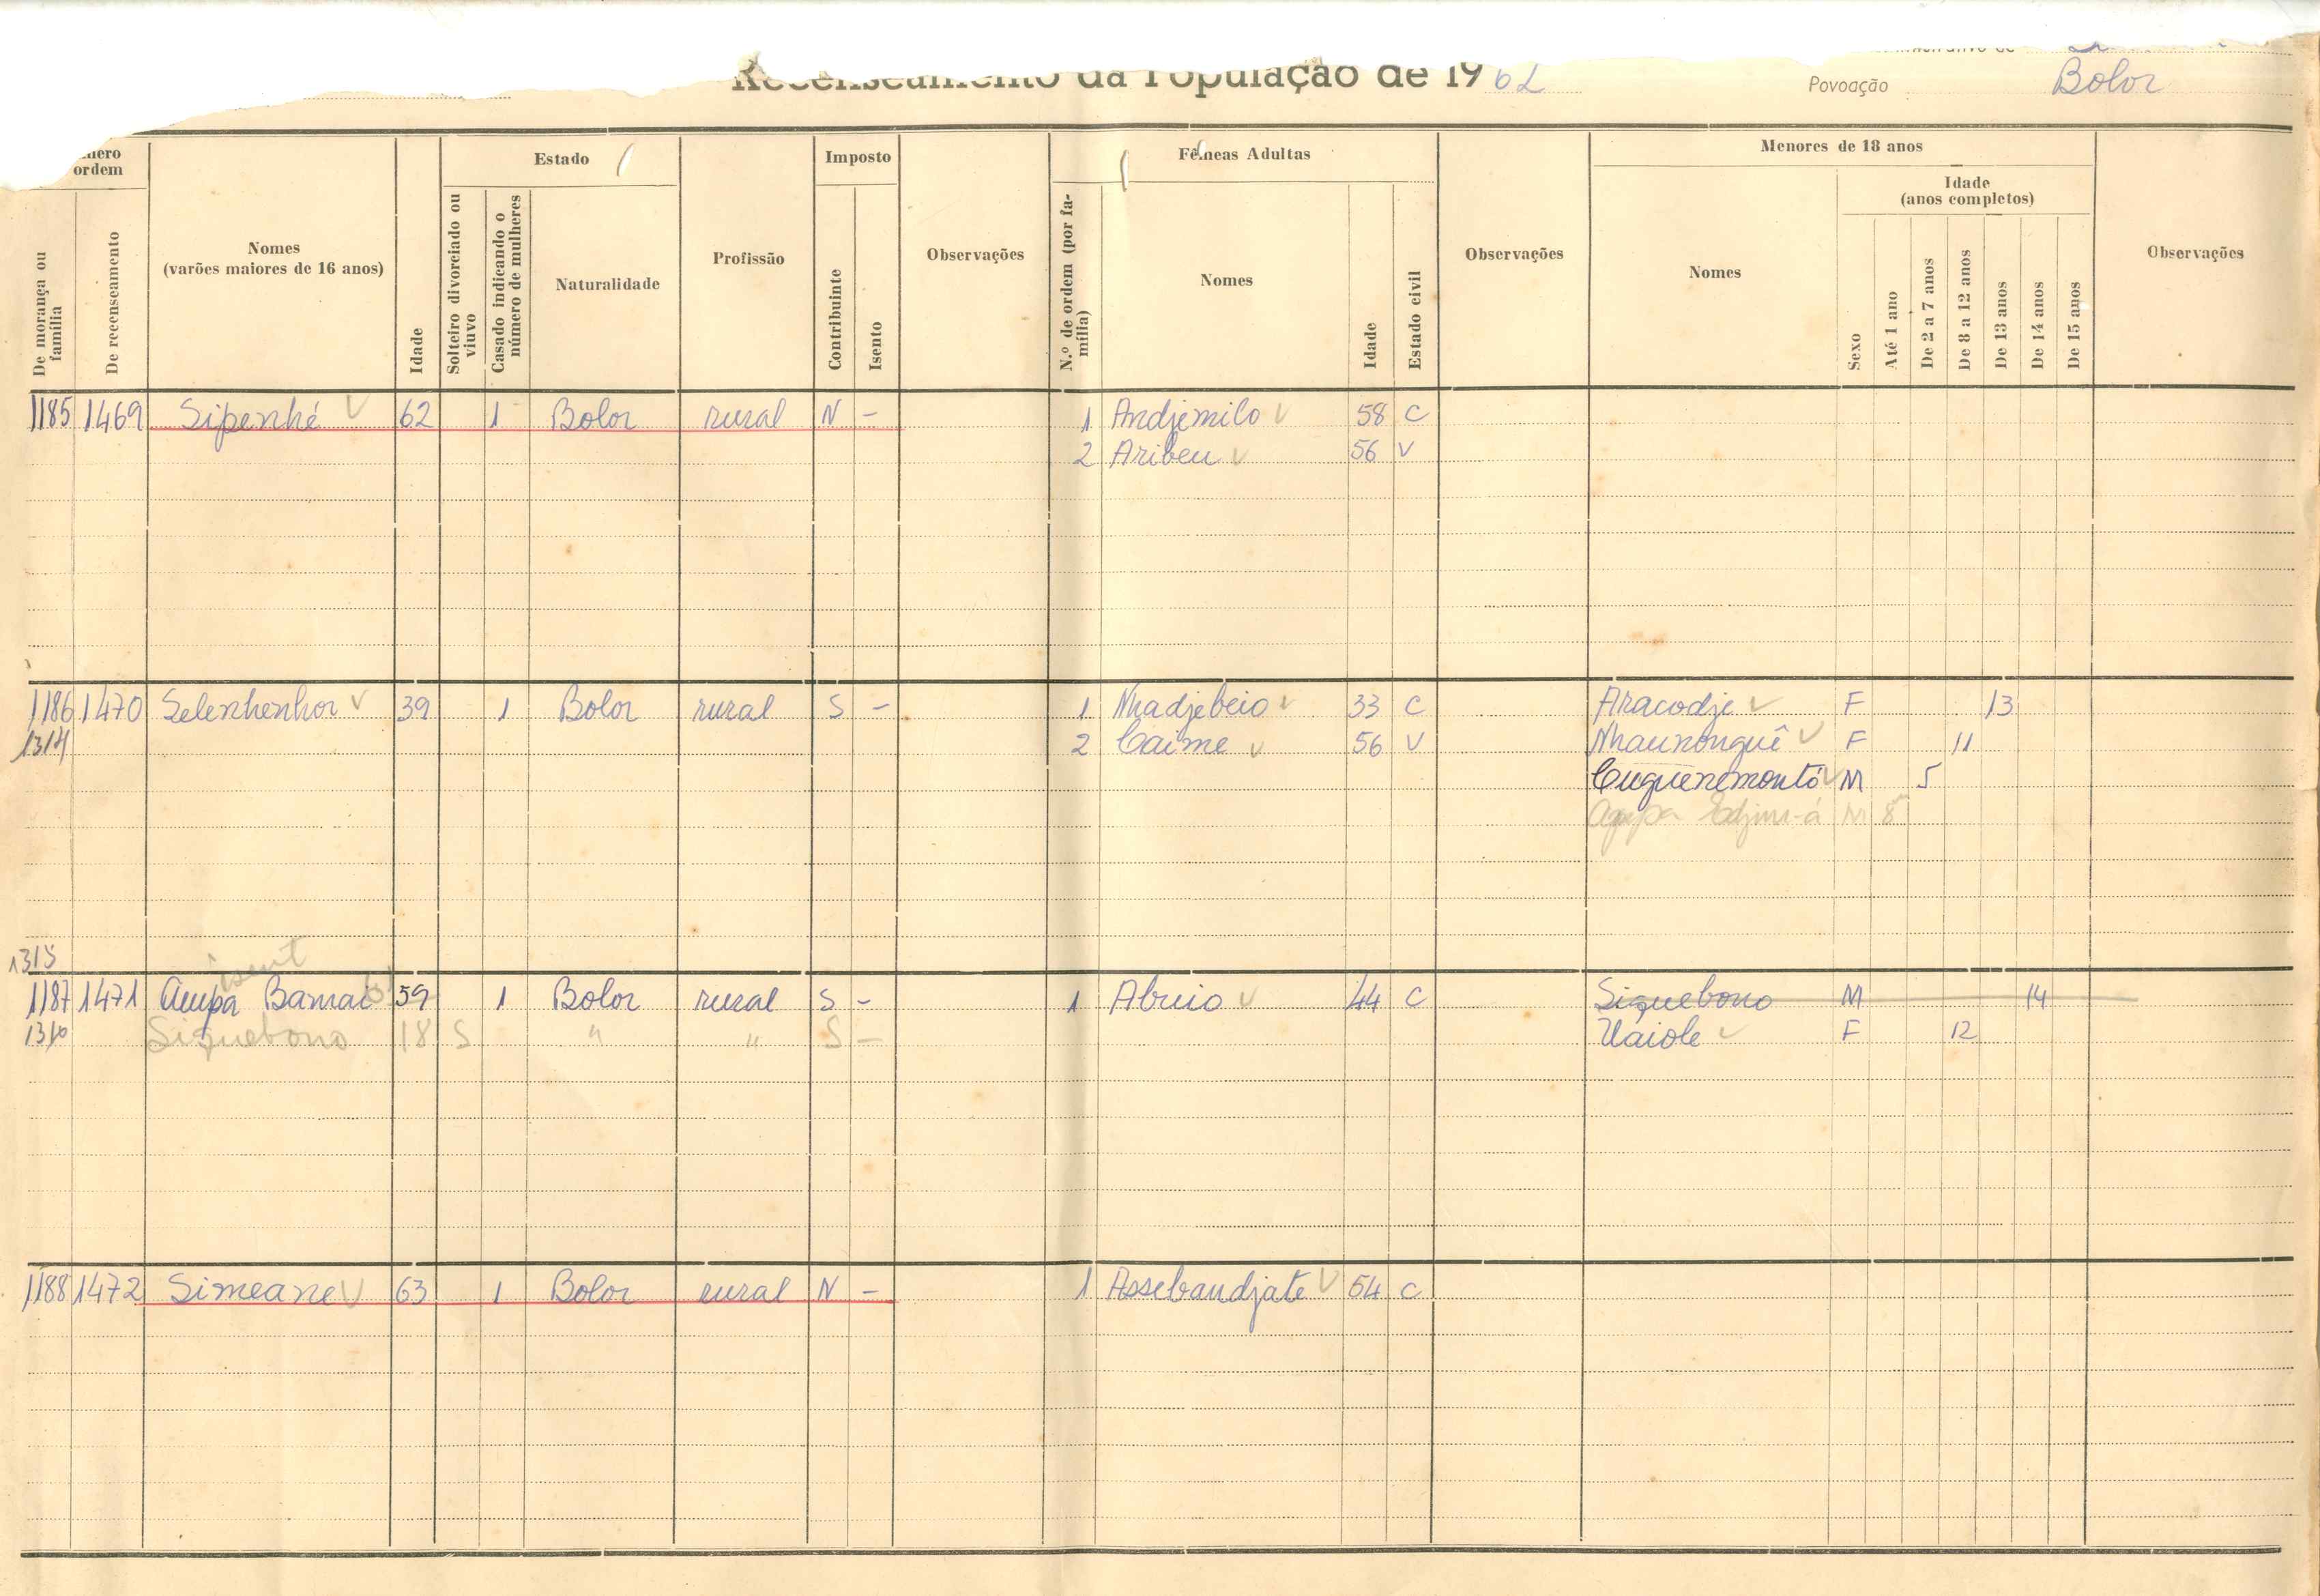 Recenseamento da População de 1962
Povoação Bolor
ordem
De morança ou família
De recenseamento
Nomes
(varões maiores de 16 anos)
Idade
Estado
Solteiro divorciado ou viuvo
Casado indicando o número de mulheres
Naturalidade
Profissão
Imposto
Contribuinte
Isento
Observações
Fêmeas Adultas
N.º de ordem (por família)
Nomes
Idade
Estado civil
Observações
Menores de 18 anos
Nomes
Sexo
Idade
(anos completos)
Até 1 ano
De 2 a 7 anos
De 8 a 12 anos
De 13 anos
De 14 anos
De 15 anos
Observações
1185 1469 Sipenhé 62 1 Bolor rural N - 1 Andjemilo 58 C
2 Aribeu 56 V
1186 1470 Selenhenhor 39 1 Bolor rural S - 1 Nhadjebeio 33 C Aracodje F 13
2 Caime 56 V Nhaunonguê F 11
Cuguenemontó M 5
M 8
1315
1187 1471 Aupa Bamai 59 1 Bolor rural S - 1 Abuio 44 C Siquebono M 14
Siquebono 18 S " " S - Uaiole F 12
1188 1472 Simeane 63 1 Bolor rural N - 1 Assebaudjate 54 C